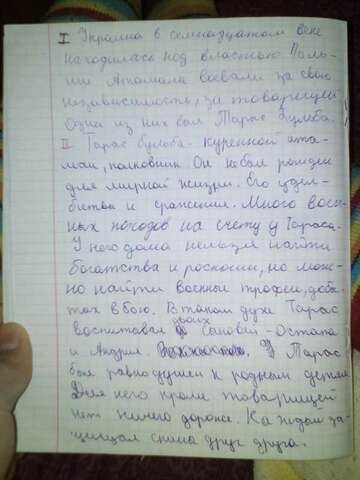 I Украина в семнадцатом веке
находилась под властью Поль-
ши Атамана воевали за свою
независимость, за товарищей
Одна из них был Тарас Бульба.
II Тарас Бульба - куренной ата-
ман, полковник. Он не был рожден
для мирной жизни. Его удел-
битва и сражения. Много воен-
ных походов на счету у Тараса.
У него дома нельзя найти
богатства и роскоши, но мож-
но найти военные трофеи, добы-
тых в бою. В таком духе Тарас
воспитывал двоих сыновей - Остапа
и Андрия. У Тарас
был равнодушен к родным детям
Для него кроме товарищей
нет ничего дороже. Каждой за-
щищал спина друг друга.